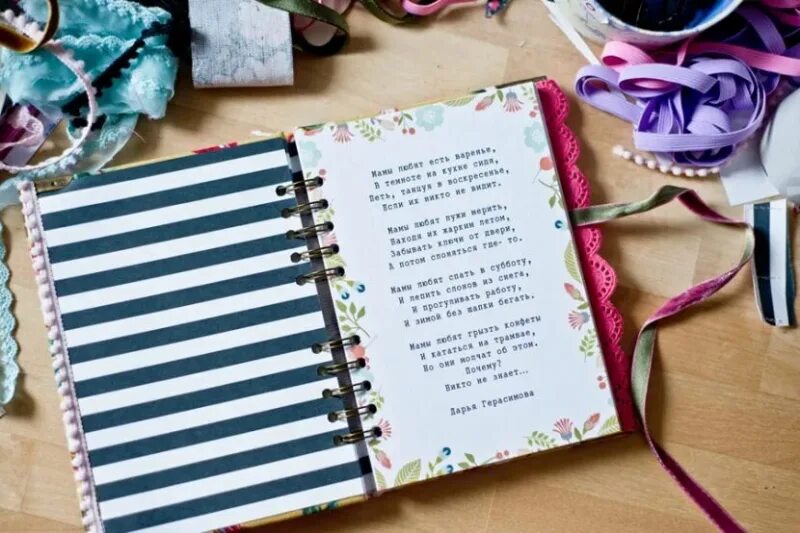 Мамы любят есть варенье,
В темноте на кухне сидя,
Петь, танцуя в воскресенье,
Если их никто не видит.
Мамы любят лужи мерить,
Находя их жарким летом,
Забывать ключи от двери,
А потом слоняться где- то.
Мамы любят спать в субботу
И лепить слонов из снега,
И прогуливать работу,
И зимой без шапки бегать.
Мамы любят грызть конфеты
И кататься на трамвае,
Но они молчат об этом.
Почему?
Никто не знает...
Дарья Герасимова